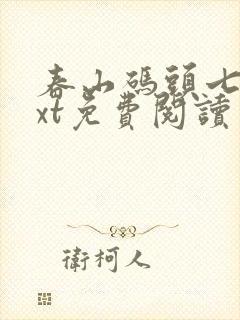 春山碼頭七
xt免費閱讀
衛柯人